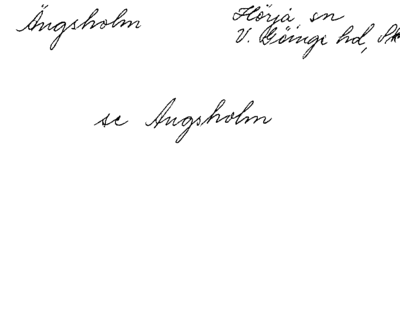 Ängsholm
Hörja sn
V. Göinge hd, Sk
se Angsholm